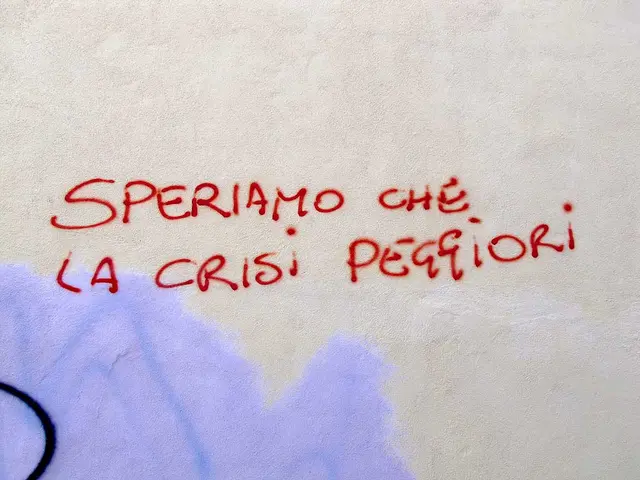 SPERIAMO CHE
LA CRISI PEGGIORI